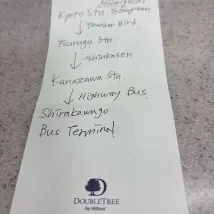 Kyoto Stn.
↓ Thunder Bird
Tsuruga Stn.
↓ Shinkansen
Kanazawa Stn.
↓ Highway Bus
Shirakawago
Bus Terminal
DOUBLETREE
by Hilton